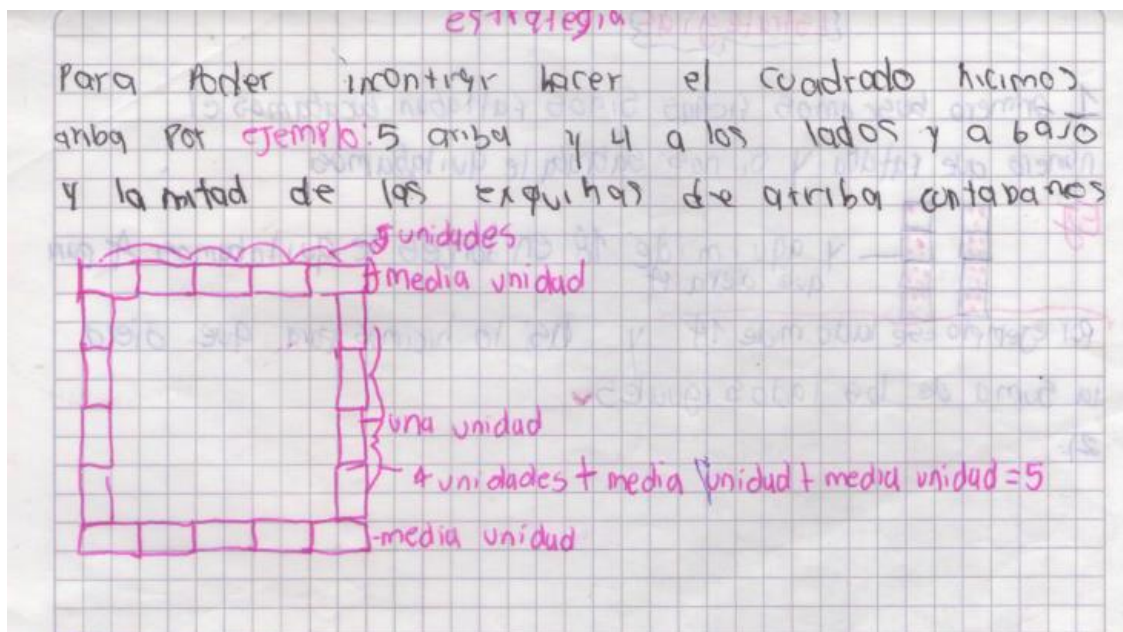 estrategia
Para Poder incontrar hacer el cuadrado hicimos
arriba Por ejemplo: 5 arriba y 4 a los lados y a bajo
y la mitad de las exquinas de arriba contabamos
5 unidades
media unidad
una unidad
4 unidades + media unidad + media unidad = 5
-media unidad